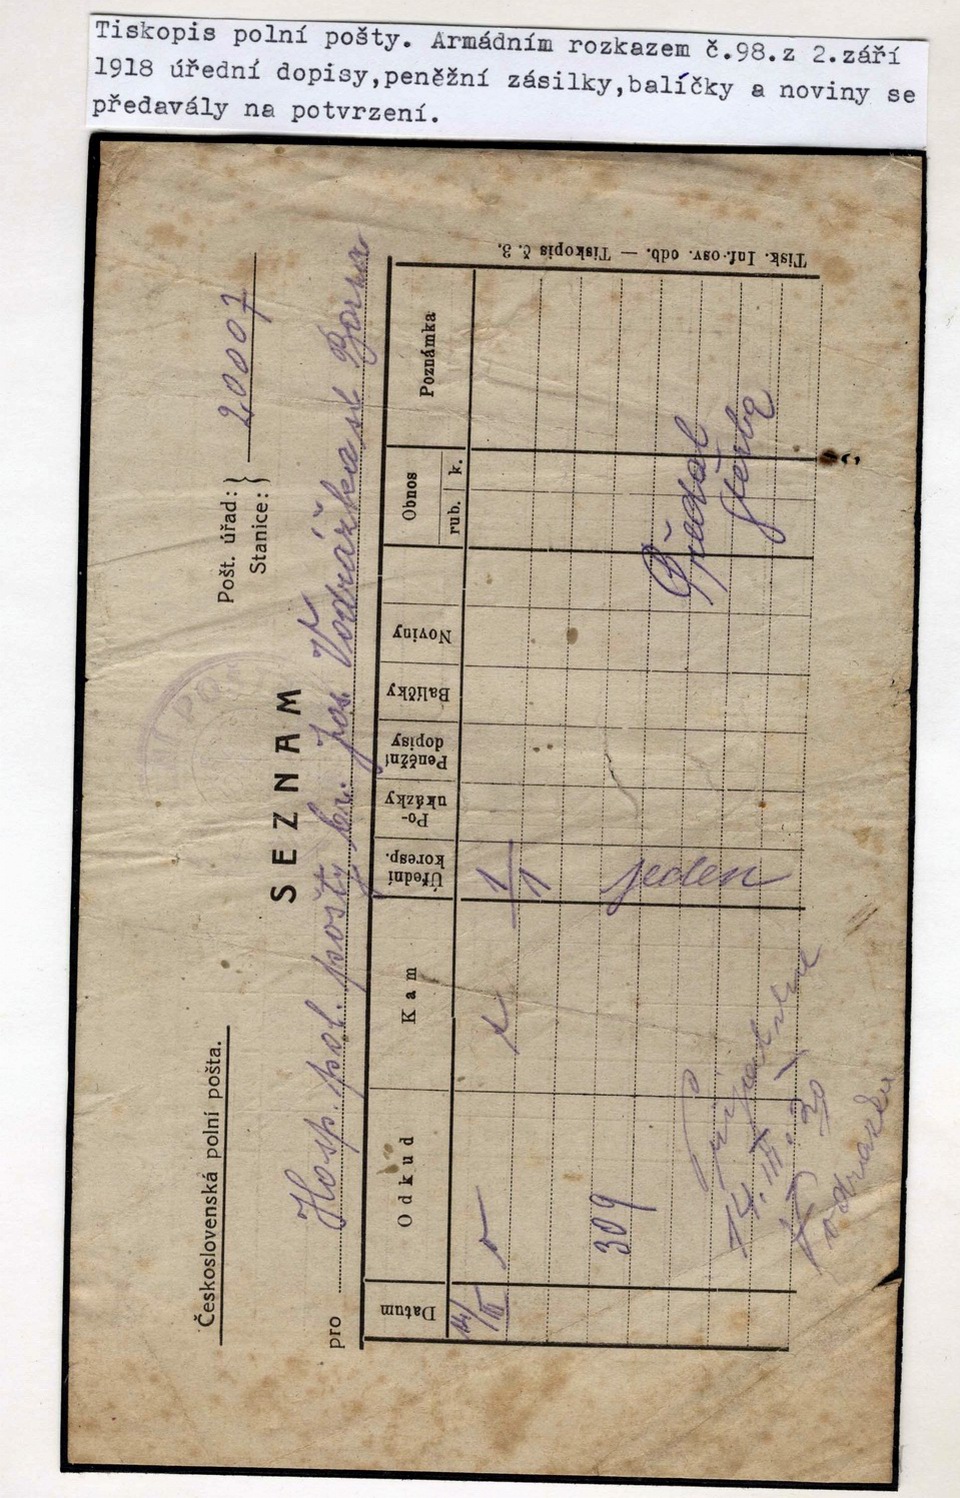 Tiskopis polní pošty. Armádním rozkazem č.98.z 2.září
1918 úřední dopisy,peněžní zásilky,balíčky a noviny se
předavály na potvrzení.
Československá polní pošta.
Pošt. úřad:
Stanice:
20007
SEZNAM
pro Hosp. pol. pošty br. Jos. Vodrážka
Datum
Odkud
Kam
Úřední koresp.
Po-ukázky
Peněžní dopisy
Balíčky
Noviny
Obnos
rub. k.
Poznámka
14/III
1
1
309
jeden
Předal
Štěrba
Přijal
14. III. 20
Vodrážka
Tisk. Inf.-osv. odb. — Tiskopis č. 3.